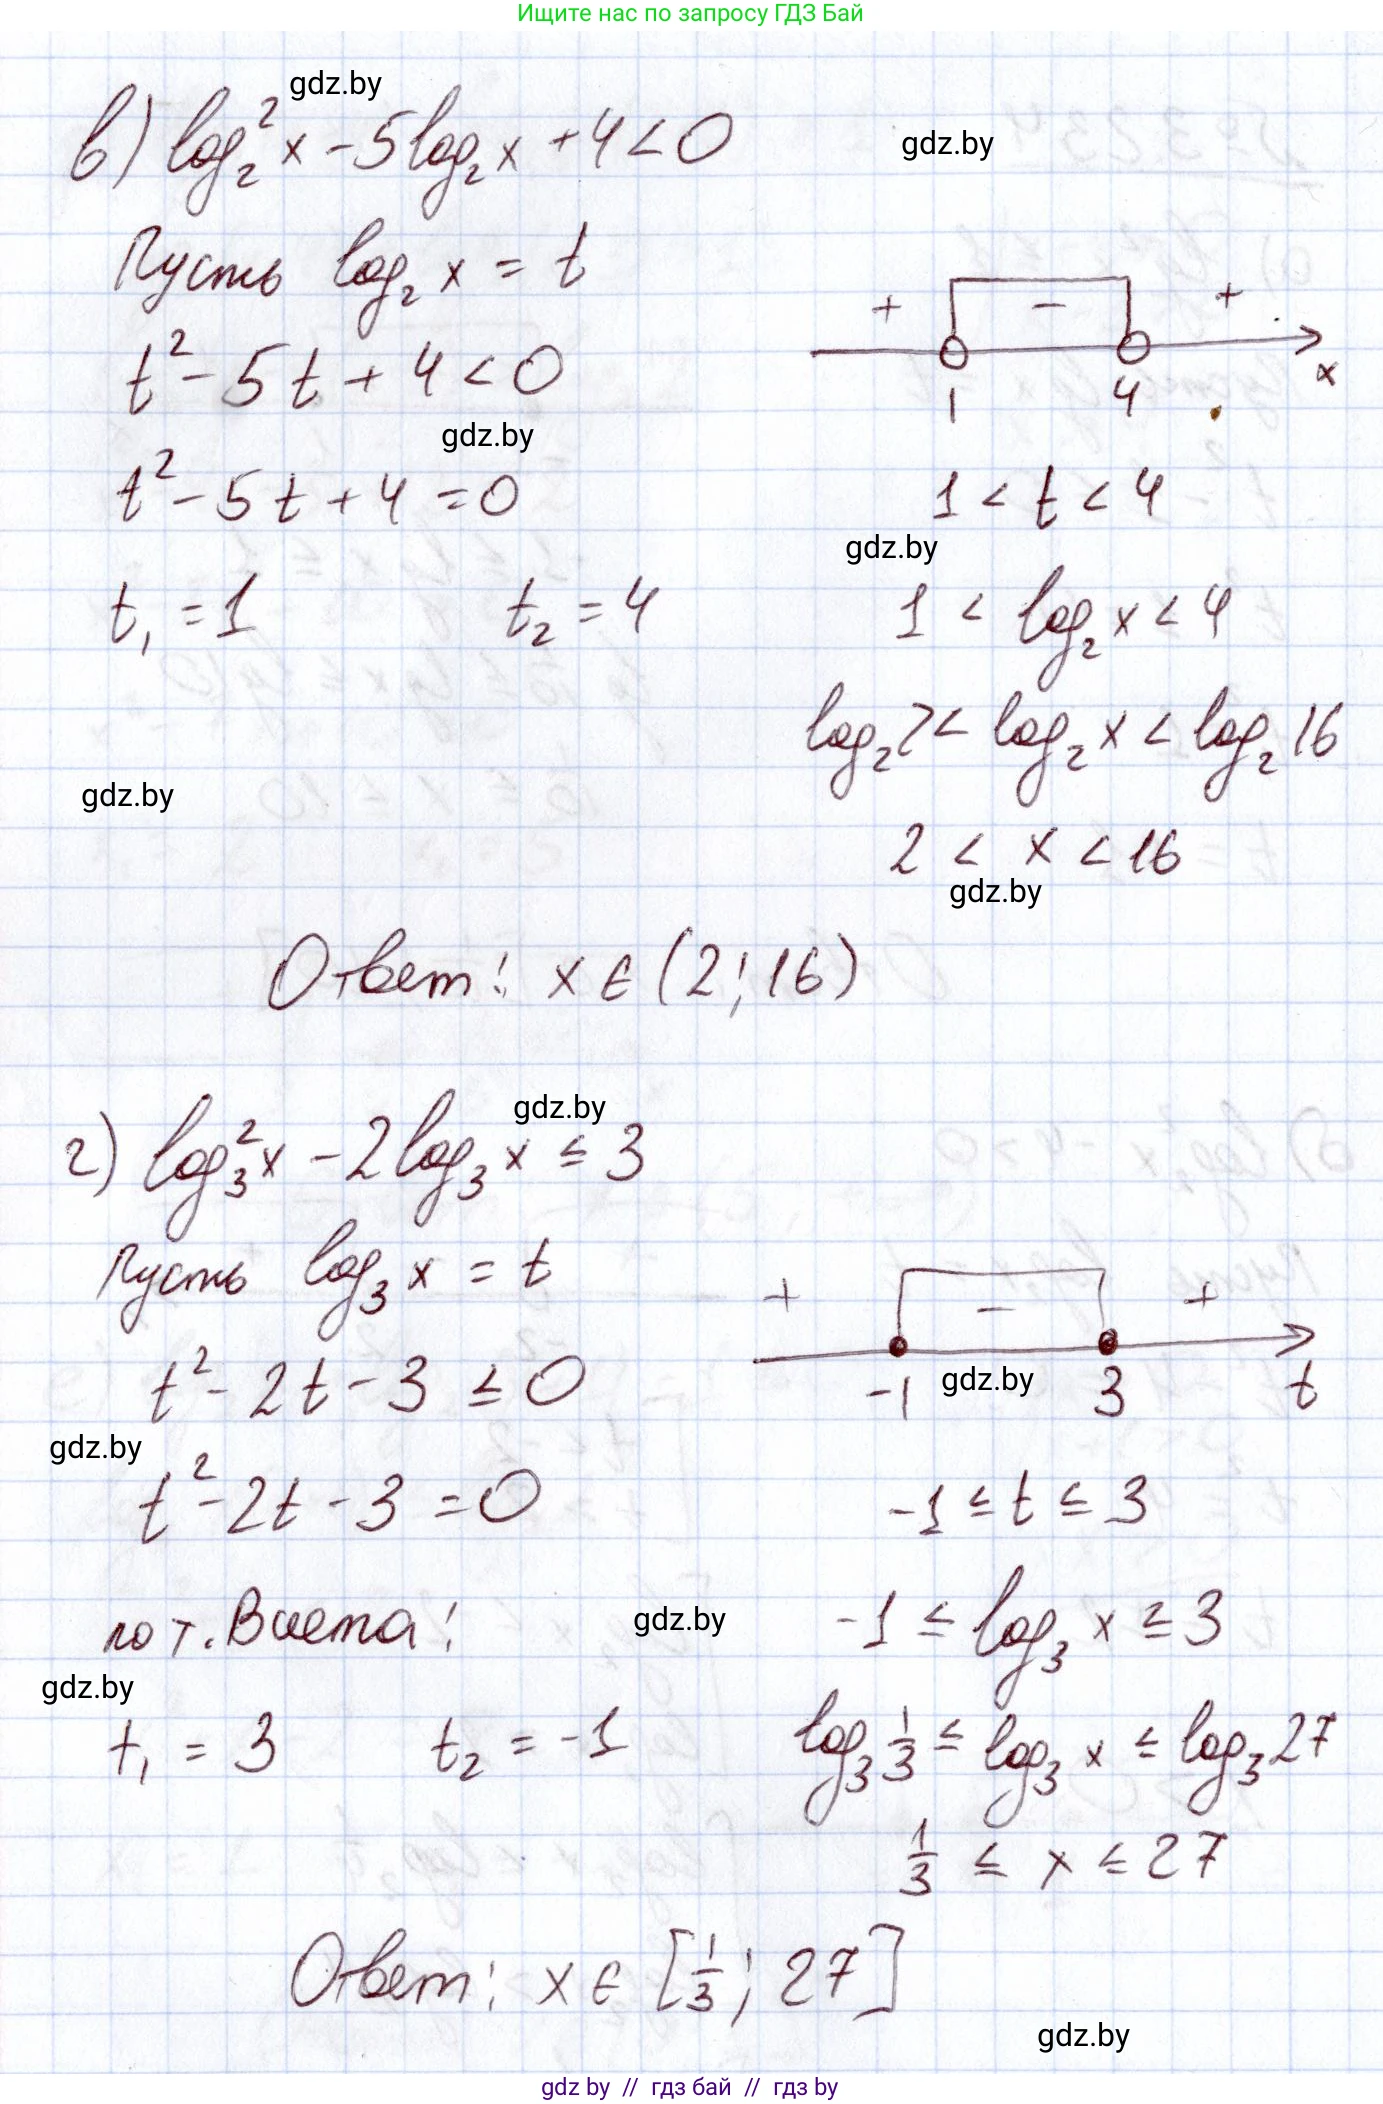 Ищите нас по запросу ГДЗ Бай
gdz.by
в) log₂² x - 5 log₂ x + 4 < 0
gdz.by
Пусть log₂ x = t
+ - +
t² - 5t + 4 < 0
1 4 x
gdz.by
t² - 5t + 4 = 0
1 < t < 4
gdz.by
t₁ = 1 t₂ = 4
1 < log₂ x < 4
log₂ 2 < log₂ x < log₂ 16
gdz.by
2 < x < 16
gdz.by
Ответ: x ∈ (2; 16)
gdz.by
г) log₃² x - 2 log₃ x ≤ 3
Пусть log₃ x = t
+ - +
t² - 2t - 3 ≤ 0
-1 3 t
gdz.by
gdz.by
t² - 2t - 3 = 0
-1 ≤ t ≤ 3
по т. Виета:
gdz.by
-1 ≤ log₃ x ≤ 3
gdz.by
t₁ = 3 t₂ = -1
log₃ 1/3 ≤ log₃ x ≤ log₃ 27
1/3 ≤ x ≤ 27
Ответ: x ∈ [1/3; 27]
gdz.by
gdz by // гдз бай // гдз by